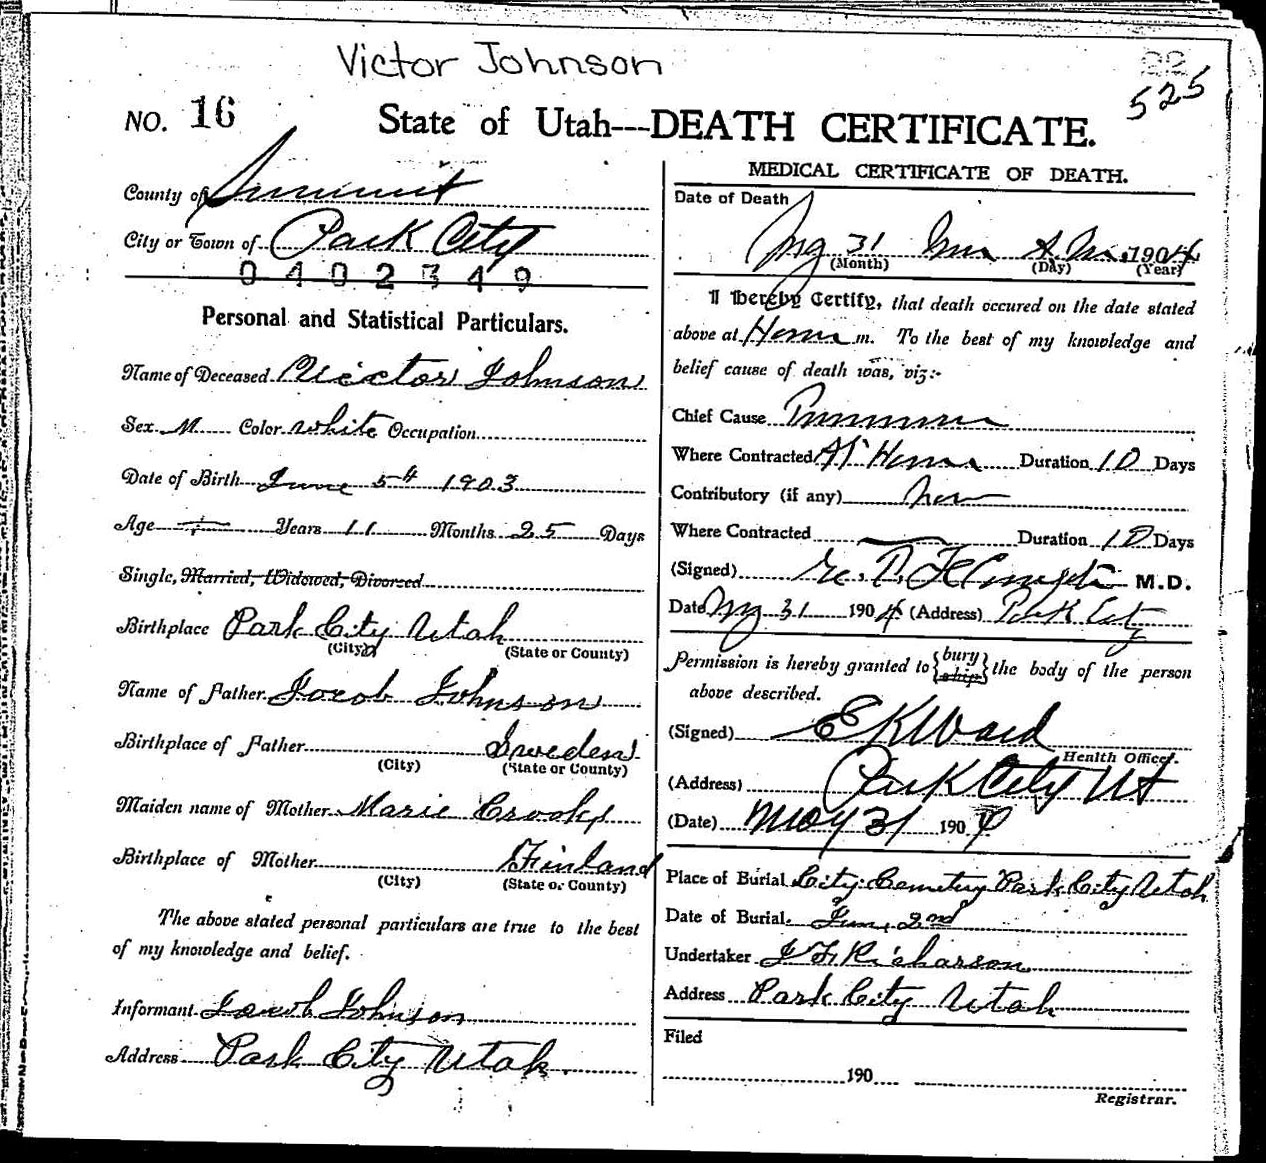 Victor Johnson
525
NO. 16 State of Utah---DEATH CERTIFICATE.
County of Summit
City or Town of Park City
0402349
Personal and Statistical Particulars.
Name of Deceased Victor Johnson
Sex M Color white Occupation
Date of Birth June 5th 1903
Age Years 11 Months 25 Days
Single, Married, Widowed, Divorced
Birthplace Park City Utah
(City) (State or County)
Name of Father Jacob Johnson
Birthplace of Father Sweden
(City) (State or County)
Maiden name of Mother Marie
Birthplace of Mother Finland
(City) (State or County)
The above stated personal particulars are true to the best
of my knowledge and belief.
Informant Jacob Johnson
Address Park City Utah.
MEDICAL CERTIFICATE OF DEATH.
Date of Death
31 1904
(Month) (Day) (Year)
I hereby Certify, that death occured on the date stated
above at m. To the best of my knowledge and
belief cause of death was, viz:-
Chief Cause
Where Contracted At Home Duration 10 Days
Contributory (if any)
Where Contracted Duration 10 Days
(Signed) M.D.
Date 31 1904 (Address) Park City
Permission is hereby granted to {bury ship} the body of the person
above described.
(Signed) E K Ward
Health Officer.
(Address) Park City Ut
(Date) May 31 1904
Place of Burial City Cemetery Park City Utah
Date of Burial Jun, 2nd
Undertaker J F Richarson
Address Park City Utah
Filed
190
Registrar.